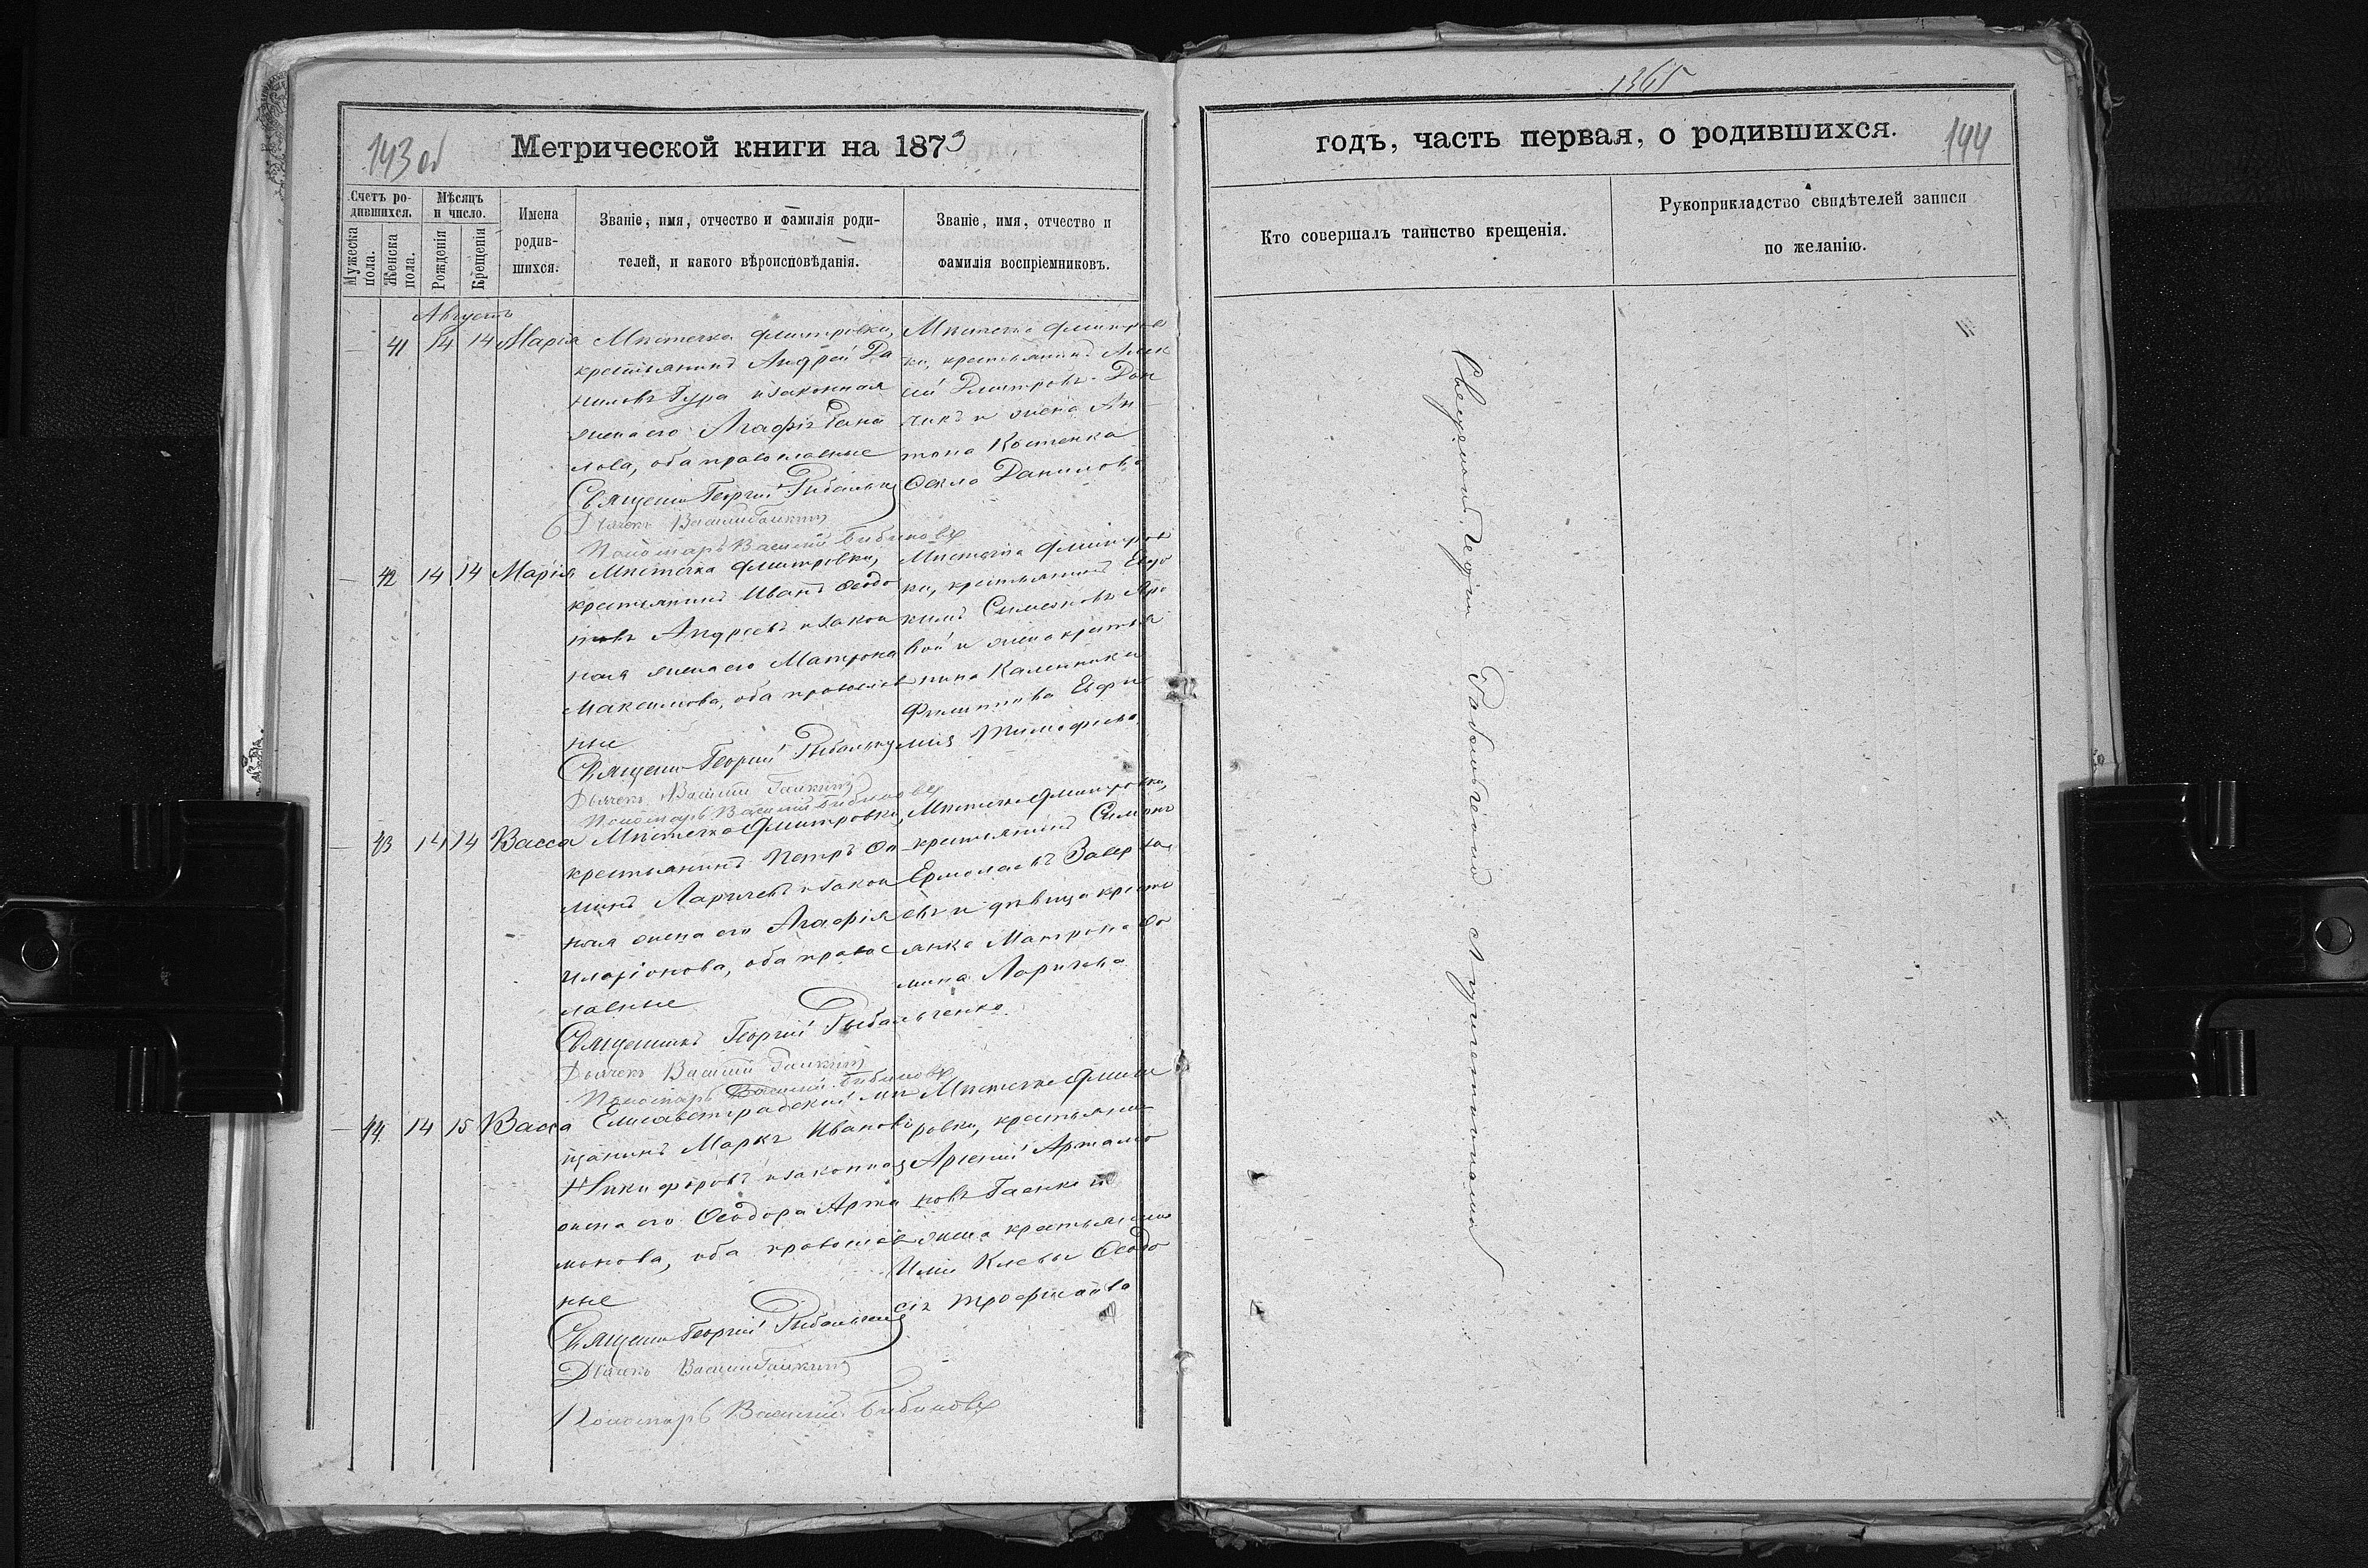 143 об
Метрической книги на 1873
Счетъ ро-
дившихся.
Мужеска
пола.
Женска
пола.
Мѣсяцъ
и число.
Рожденія
Крещенія
Имена
родив-
шихся.
Званіе, имя, отчество и фамилія роди-
телей, и какого вѣроисповѣданія.
Званіе, имя, отчество и
фамилія воспріемниковъ.
Августъ
41 14 14 Марія
Мѣстечка Дмитровки,
крестьянинъ Андрей Да
ниловъ Гура и законная
жена его Агафія
лова, оба православные
Священ Георгій
Дьячекъ Василій
Пономарь Василій Бибиковъ
Мѣстечка Дмитров
ки, крестьянинъ Алек
сій Дмитровъ
и жена Ан
тона Костенка
Данилова
42 14 14 Марія
Мѣстечка Дмитровки,
крестьянинъ Иванъ Ѳеодо
товъ Андреевъ и закон
ная жена его Матрона
Максимова, оба православ
ные
Священ Георгій
Дьячекъ Василій
Пономарь Василій Бибиковъ
Мѣстечка Дмитров
ки, крестьянинъ Евдо
кимъ Симеоновъ Яро
вой и жена крестья
нина Калинника
Филиппова Евфи
мія Тимофеева
43 14 14 Васса
Мѣстечка Дмитровки,
крестьянинъ Петръ Ѳо
минъ Ларичевъ и закон
ная жена его Агафія
Иларіонова, оба правос
лавные
Священникъ Георгій Рыбальченко
Дьячекъ Василій
Пономарь Василій Бибиковъ
Мѣстечка Дмитровки,
крестьянинъ Симеонъ
Ермолаевъ
евъ и дѣвица кресть
янка Матрона Ѳо
мина Ларичева
44 14 15 Васса
Елисаветградскій мѣ
щанинъ Маркъ Ивановъ
Никифоровъ и законная
жена его Ѳеодора Арта
монова, оба православ
ные
Священ Георгій
Дьячекъ Василій
Пономарь Василій Бибиковъ
Мѣстечка Дмит
ровки, крестьянин
Арсеній Артамо
новъ Гаенко и
жена крестьянина
Ѳеодо
сія Трофимова
1365
годъ, часть первая, о родившихся.
144
Кто совершалъ таинство крещенія.
Рукоприкладство свидѣтелей записи
по желанію.
Священникъ Георгій Рыбальченко